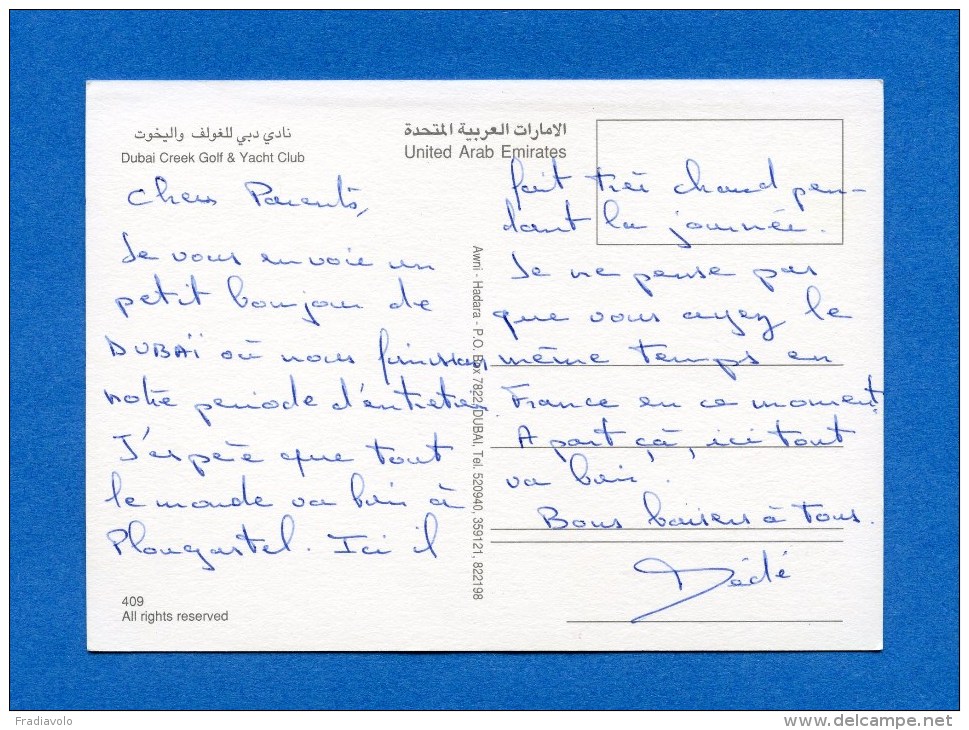 نادي دبي للغولف واليخوت
Dubai Creek Golf & Yacht Club
الامارات العربية المتحدة
United Arab Emirates
Chers Parents,
Je vous envoie un
petit bonjour de
DUBAÏ où nous finissons
notre periode d'entretien.
J'espère que tout
le monde va bien à
Plougastel. Ici il
fait très chaud pen-
dant la journée.
Je ne pense pas
que vous ayez le
même temps en
France en ce moment.
A part çà, ici tout
va bien.
Bons baisers à tous.
Dédé
Awni - Hadara - P.O. Box 7822, DUBAI, Tel. 520940, 359121, 822198
409
All rights reserved
Fradiavolo
delcampe.net